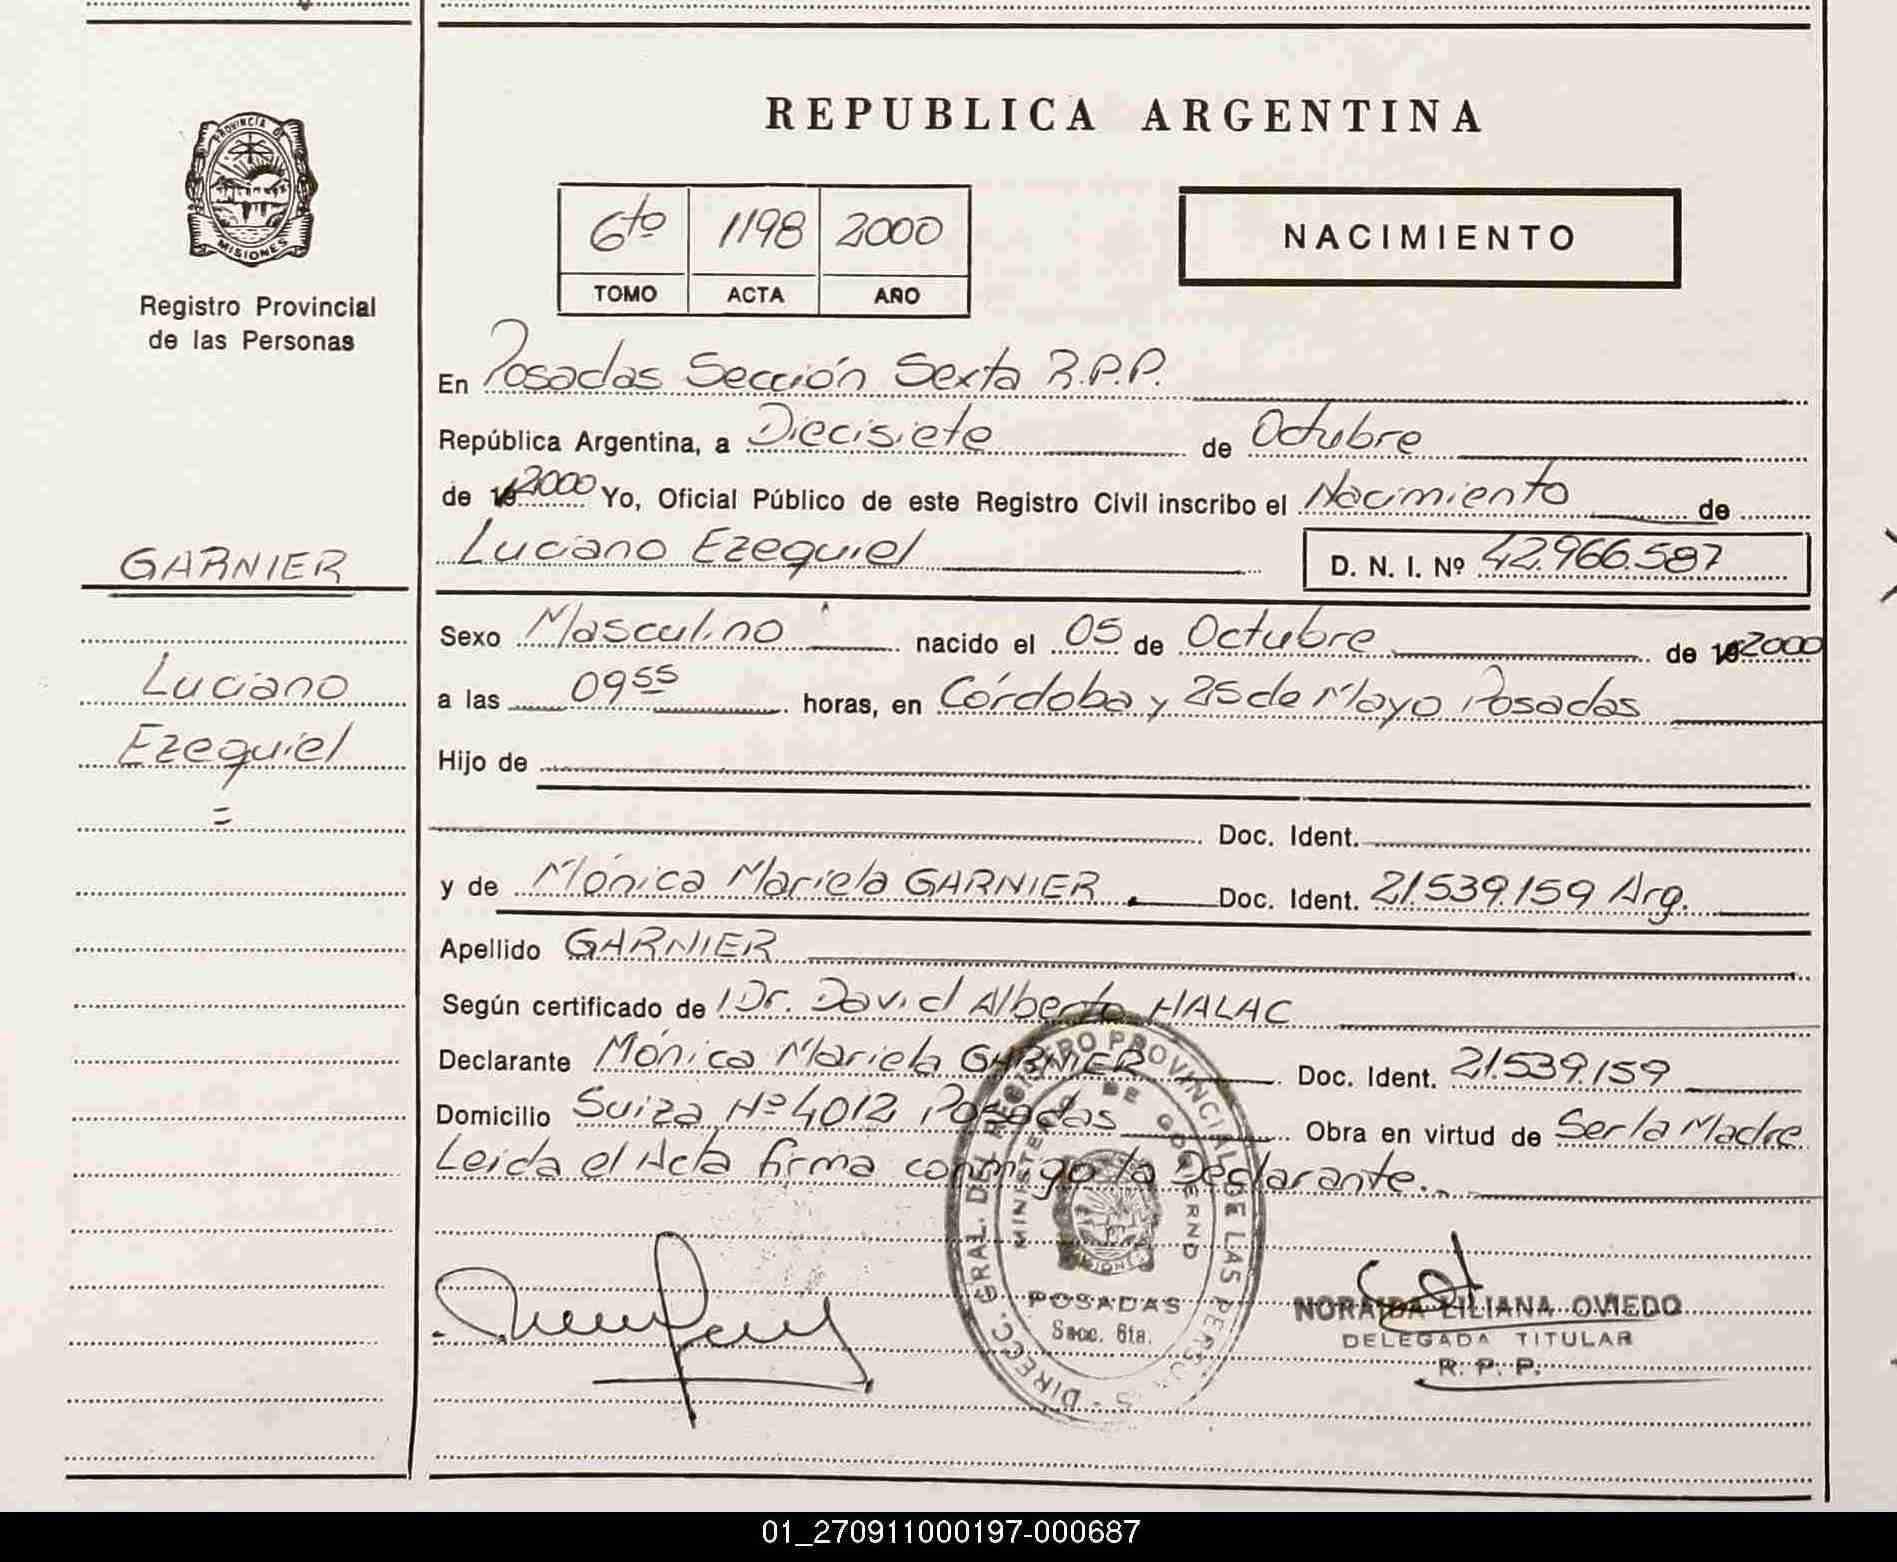 REPUBLICA ARGENTINA
PROVINCIA DE
MISIONES
Registro Provincial
de las Personas
6to 1198 2000
TOMO ACTA AÑO
NACIMIENTO
En Posadas Sección Sexta R.P.P.
República Argentina, a Diecisiete de Octubre
de 19 2000 Yo, Oficial Público de este Registro Civil inscribo el Nacimiento de
Luciano Ezequiel D. N. I. Nº 42.966.587
GARNIER
Luciano
Ezequiel
=
Sexo Masculino nacido el 05 de Octubre de 19 2000
a las 09 55 horas, en Córdoba y 25 de Mayo Posadas
Hijo de
Doc. Ident.
y de Mónica Mariela GARNIER. Doc. Ident. 21.539.159 Arg.
Apellido GARNIER
Según certificado de Dr. David Alberto HALAC
Declarante Mónica Mariela GARNIER Doc. Ident. 21.539.159
Domicilio Suiza Nº 4012 Posadas Obra en virtud de Ser la Madre
Leida el Acta firma conmigo la Declarante.
DIRECC. GRAL. DEL REGISTRO PROVINCIAL DE LAS PERSONAS
MINISTERIO DE GOBIERNO
MISIONES
POSADAS
Secc. 6ta.
NORAIDA LILIANA OVIEDO
DELEGADA TITULAR
R. P. P.
01_270911000197-000687